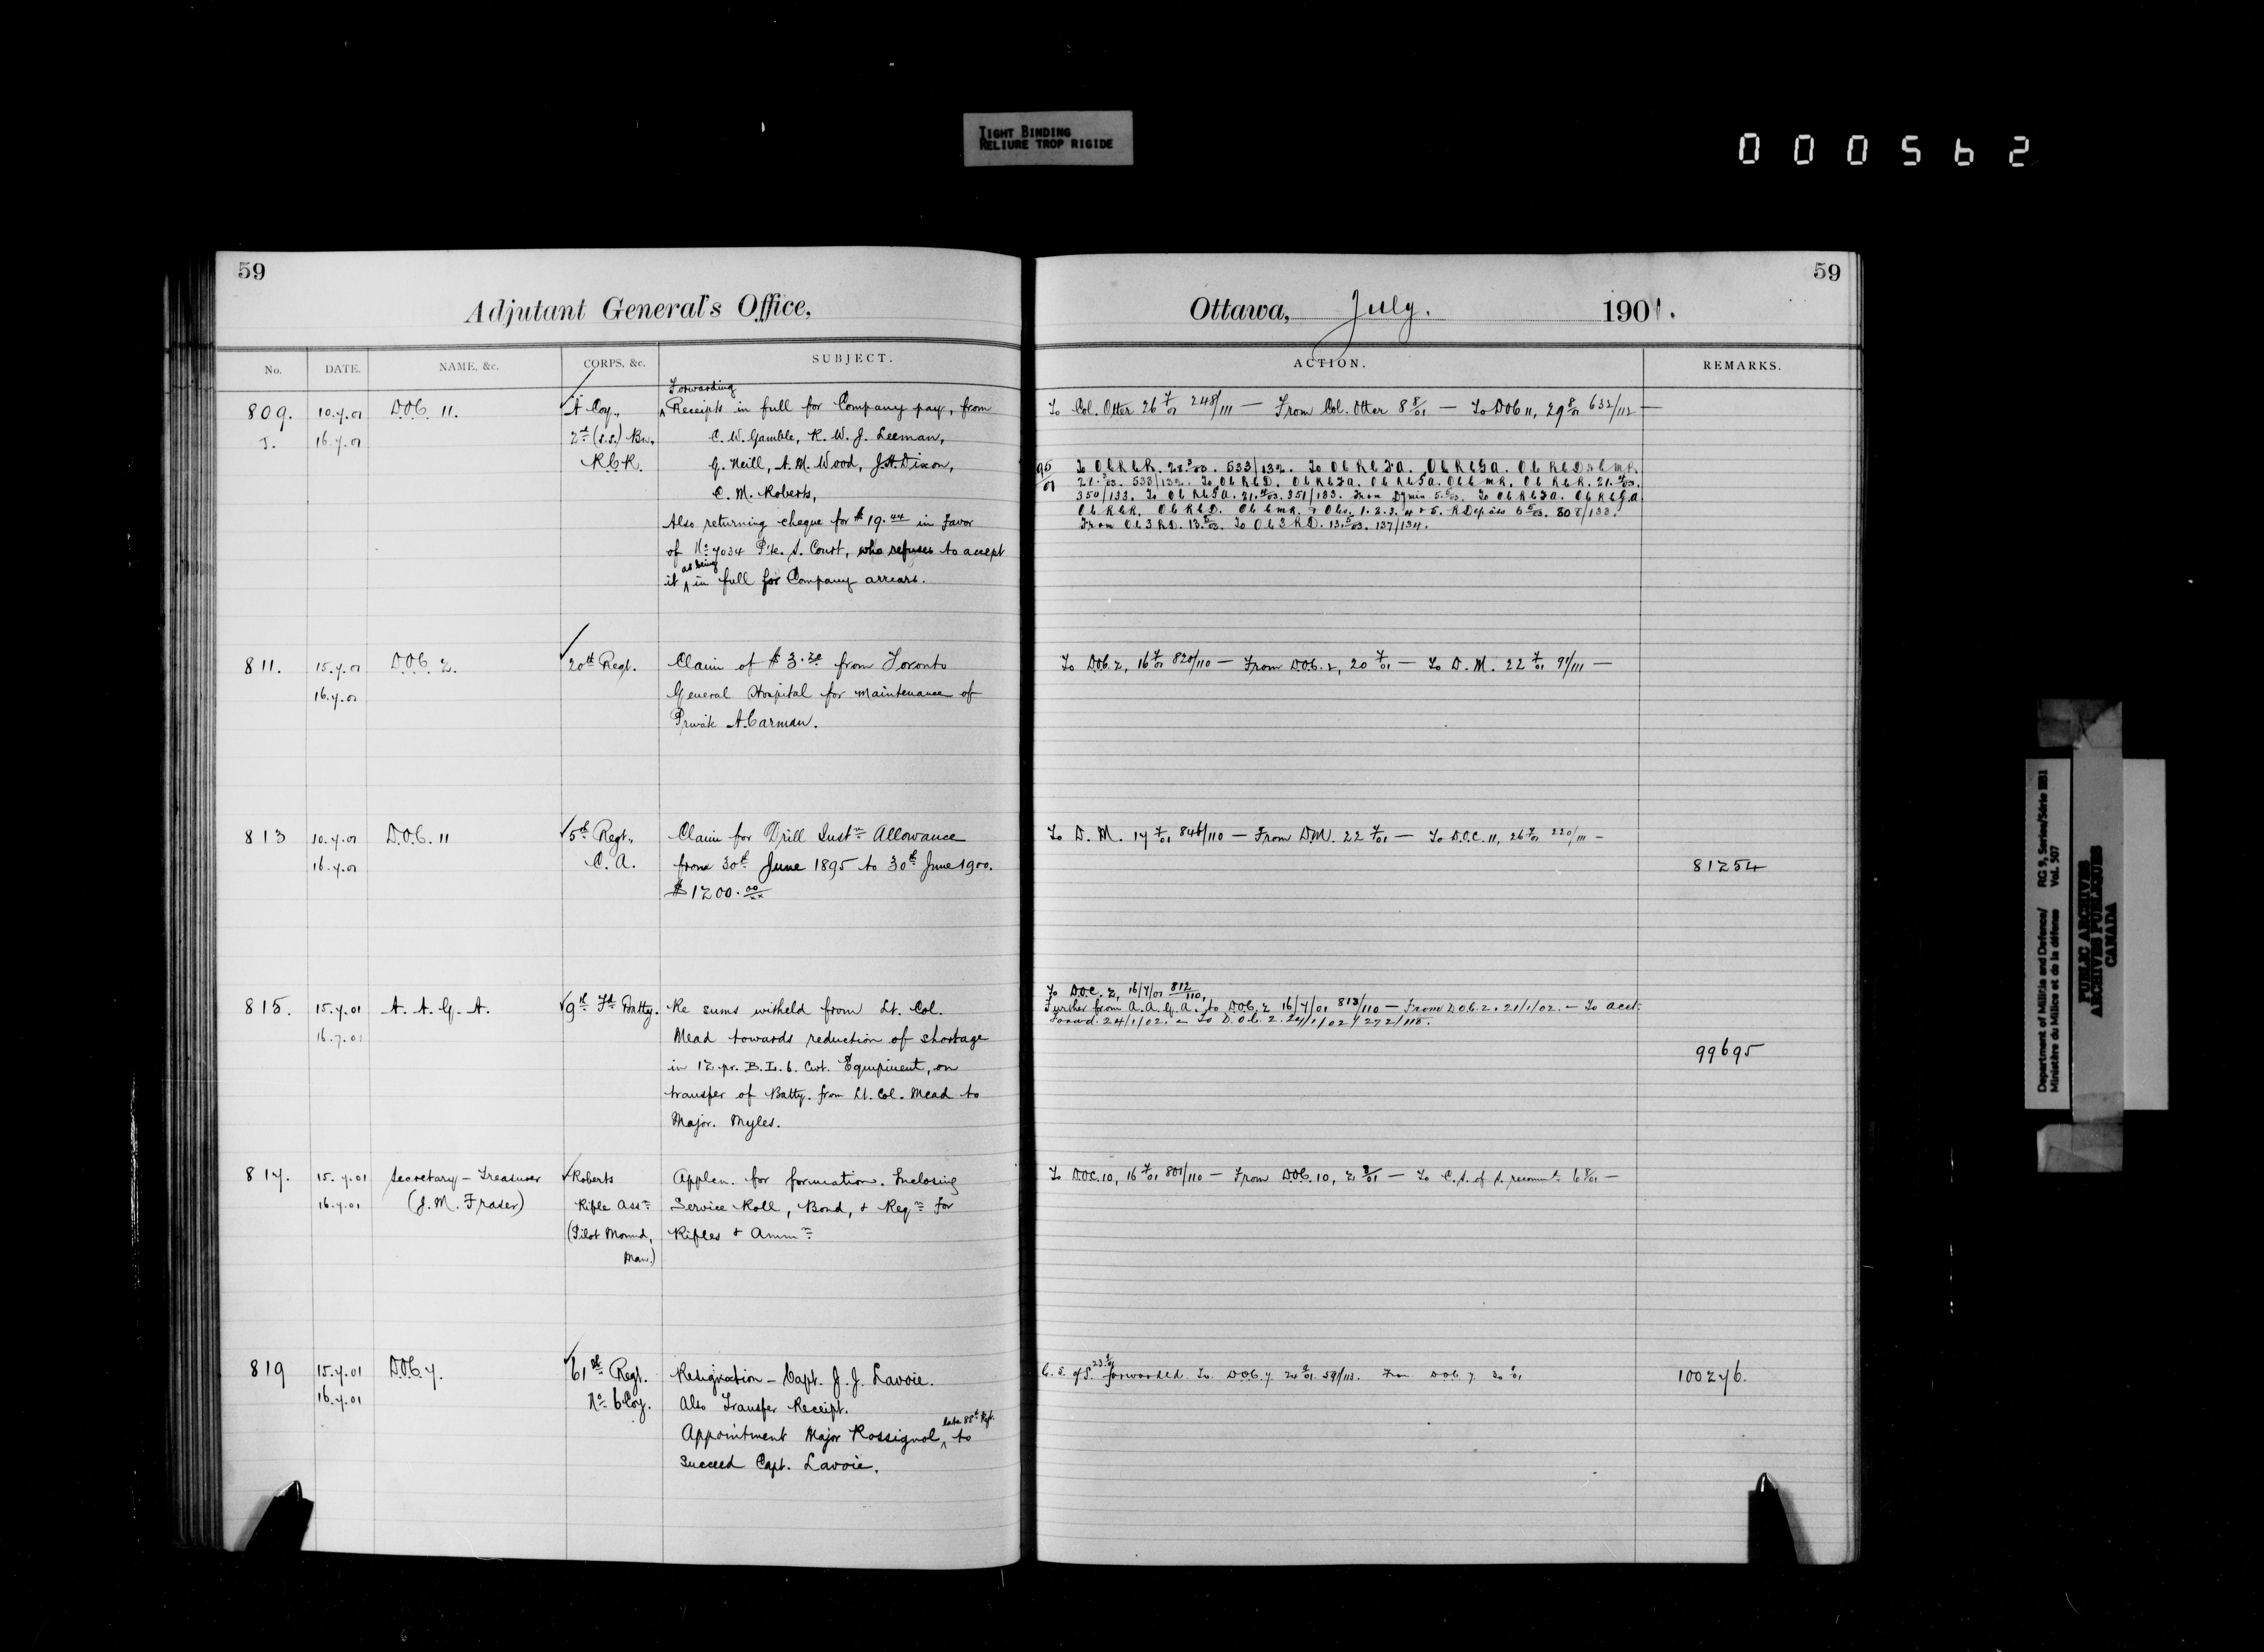 TIGHT BINDING
RELIURE TROP RIGIDE
000562
59
Adjutant General's Office,
No. DATE. NAME, &c. CORPS, &c. SUBJECT.
809. 10.7.01 D.O.C. 11. A Coy., Forwarding
J. 16.7.01 2nd (S.S.) Bn. Receipts in full for Company pay, from
R.C.R. C. W. Gamble, R. W. J. Leeman,
G. Neill, A. M. Wood, J. H. Dixon,
C. M. Roberts,
Also returning cheque for $19.44 in favor
of No 7034 Pte. S. Court, who refuses to accept
it as being in full for Company arrears.
811. 15.7.01 D.O.C. 2. 20th Regt. Claim of $3.20 from Toronto
16.7.01 General Hospital for maintenance of
Private A. Carman.
813 10.7.01 D.O.C. 11 5th Regt., Claim for Drill Instn Allowance
16.7.01 C. A. from 30th June 1895 to 30th June 1900.
$1200.00/xx
815. 15.7.01 A. A. G. A. 9th Fd Batty. Re sums witheld from Lt. Col.
16.7.01 Mead towards reduction of shortage
in 12 pr. B.L. 6. Cwt. Equipment, on
transfer of Batty. from Lt. Col. Mead to
Major. Myles.
817. 15.7.01 Secretary-Treasurer Roberts Applcn. for formation. Inclosing
16.7.01 (J. M. Fraser) Rifle Assn Service Roll, Bond, & Reqn for
(Pilot Mound, Rifles & Ammn
Man.)
819 15.7.01 D.O.C. 7. 61st Regt. Resignation - Capt. J. J. Lavoie.
16.7.01 No 6 Coy. Also Transfer Receipt.
Appointment Major Rossignol, late 85th Regt. to
succeed Capt. Lavoie.
59
Ottawa, July. 1901.
ACTION. REMARKS.
To Col. Otter 26 7/01 248/111 — From Col. Otter 8 8/01 — To DOC 11, 29 8/01 632/112 —
To D.O.C. 2, 16 7/01 820/110 — From D.O.C. 2, 20 7/01 — To D. M. 22 7/01 97/111 —
To D. M. 17 7/01 846/110 — From D.M. 22 7/01 — To D.O.C. 11, 26 7/01 220/111 —
81254
To D.O.C. 2, 16/7/01 812/110,
Further from A.A.G.A. to D.O.C. 2 16/7/01 813/110 — From D.O.C. 2. 21/1/02. — To acct.
Forwd. 24/1/02. — To D.O.C. 2. 24/1/02 / 272/118.
99695
To D.O.C. 10, 16 7/01 801/110 — From D.O.C. 10, 2 8/01 — To C.S. of S. recomd 6 8/01 —
C. S. of S. forwarded. To D.O.C. 7 24 9/01 59/113. From DOC 7. 30 9/01
100276.
Department of Militia and Defence/
Ministère du Milice et de la défense
RG 9, Series/Série IIB1
Vol. 507
PUBLIC ARCHIVES
ARCHIVES PUBLIQUES
CANADA